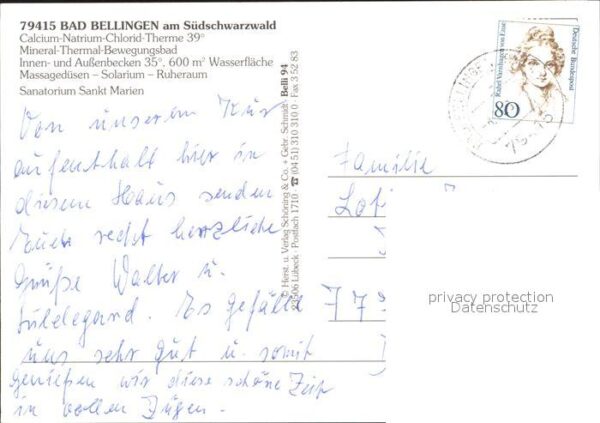 79415 BAD BELLINGEN am Südschwarzwald
Calcium-Natrium-Chlorid-Therme 39°
Mineral-Thermal-Bewegungsbad
Innen- und Außenbecken 35°, 600 m² Wasserfläche
Massagedüsen – Solarium – Ruheraum
Sanatorium Sankt Marien
Von unserem Kur
aufenthalt hier in
diesem Haus senden
Euch recht herzliche
Grüße Walter u.
Hildegard. Es gefällt
uns sehr gut u. somit
genießen wir diese schöne Zeit
in vollen Zügen.
© Herst. u. Verlag Schöning & Co. + Gebr. Schmidt · Belli 94
23506 Lübeck · Postfach 1710 · ☎ (04 51) 310 310 0 · Fax 3 52 83
Rahel Varnhagen von Ense
Deutsche Bundespost
80
Familie
77
privacy protection
Datenschutz